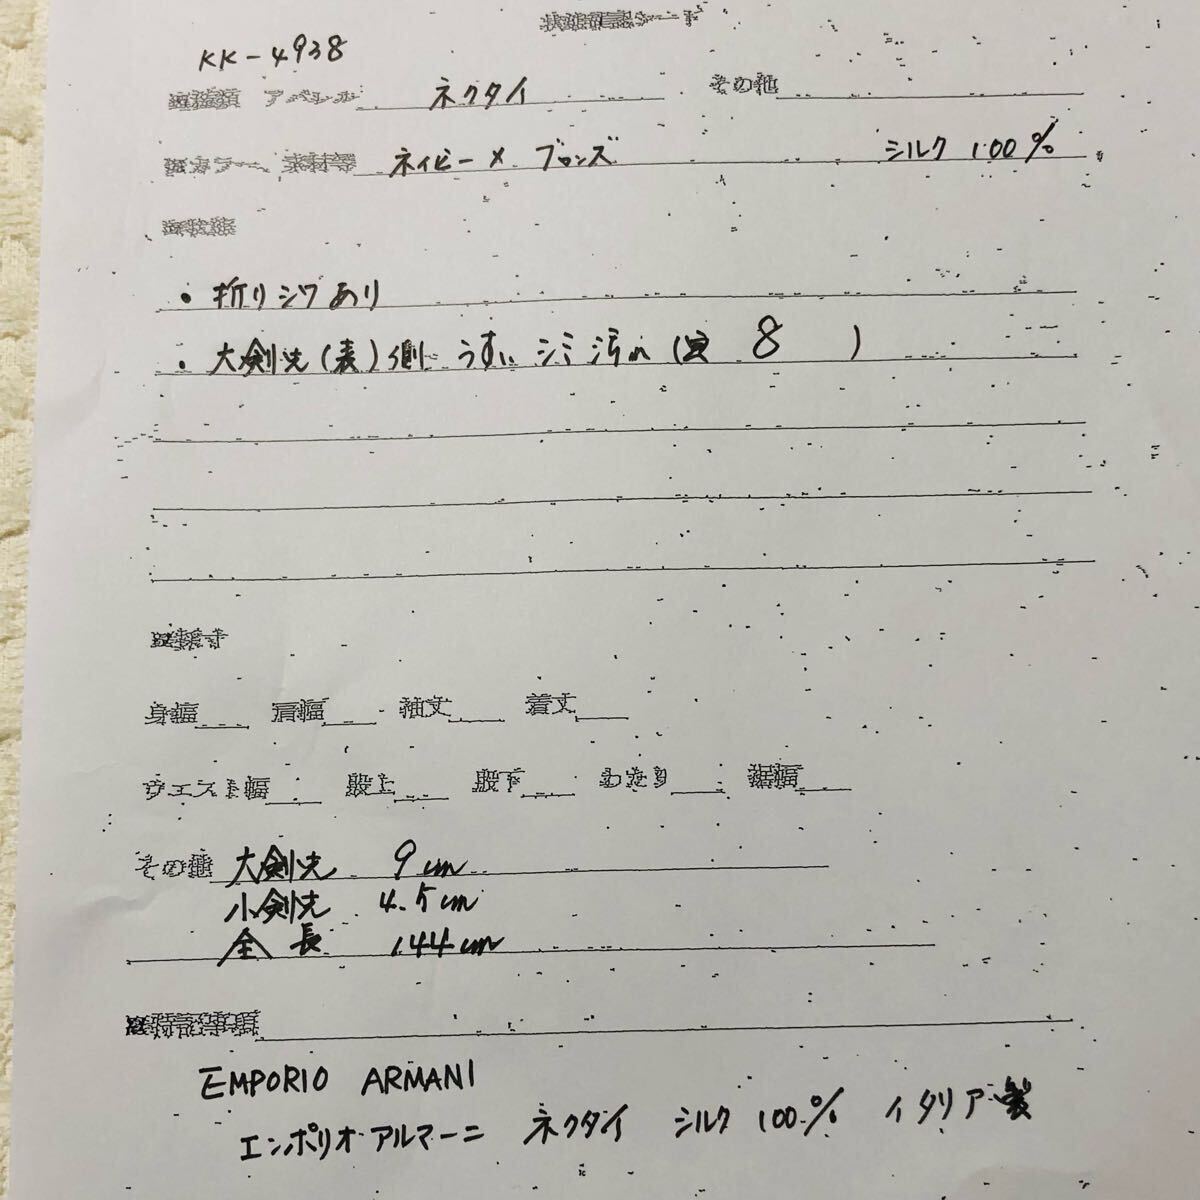 状態確認シート
KK-4938
アパレル ネクタイ その他
素材等 ネイビー × ブロンズ シルク 100%
・折りシワあり
・大剣先(表)側 うすいシミ汚れ( 8 )
身幅 肩幅 袖丈 着丈
ウエスト幅 股上 股下 わたり 裾幅
その他 大剣先 9cm
小剣先 4.5cm
全長 144cm
※特記事項
EMPORIO ARMANI
エンポリオ・アルマーニ ネクタイ シルク 100% イタリア製